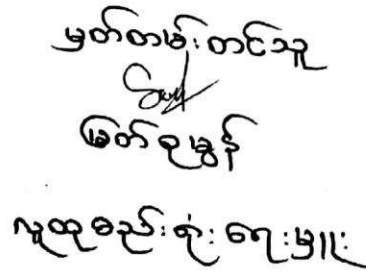 မှတ်တမ်းတင်သူ
မြတ်စုမွန်
လူထုစည်းရုံးရေးမှူး